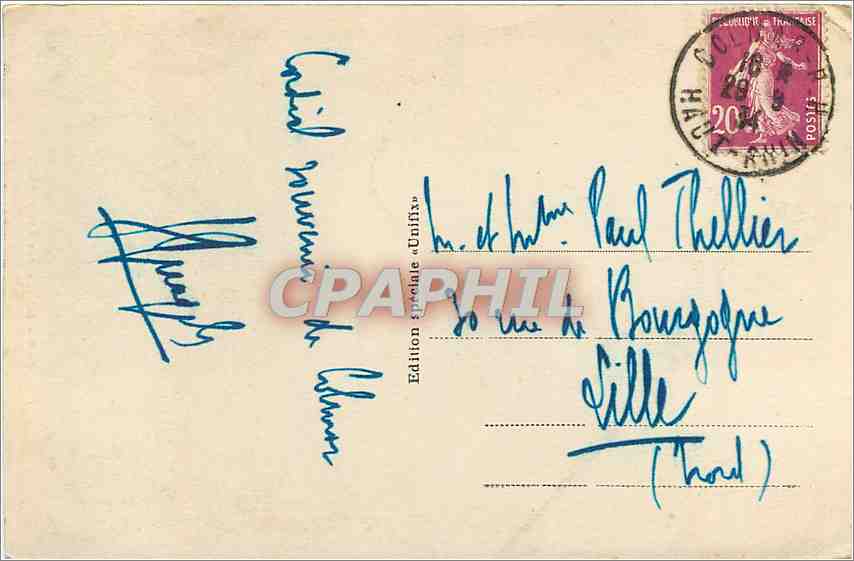 Cordial souvenir de Colmar
Edition spéciale «Unifix»
RÉPUBLIQUE FRANÇAISE
20c
POSTES
COLMAR R.P.
18
28 8
34
HAUT-RHIN
M. et Mme. Paul Thellier
30 rue de Bourgogne
Lille
(Nord)
CPAPHIL